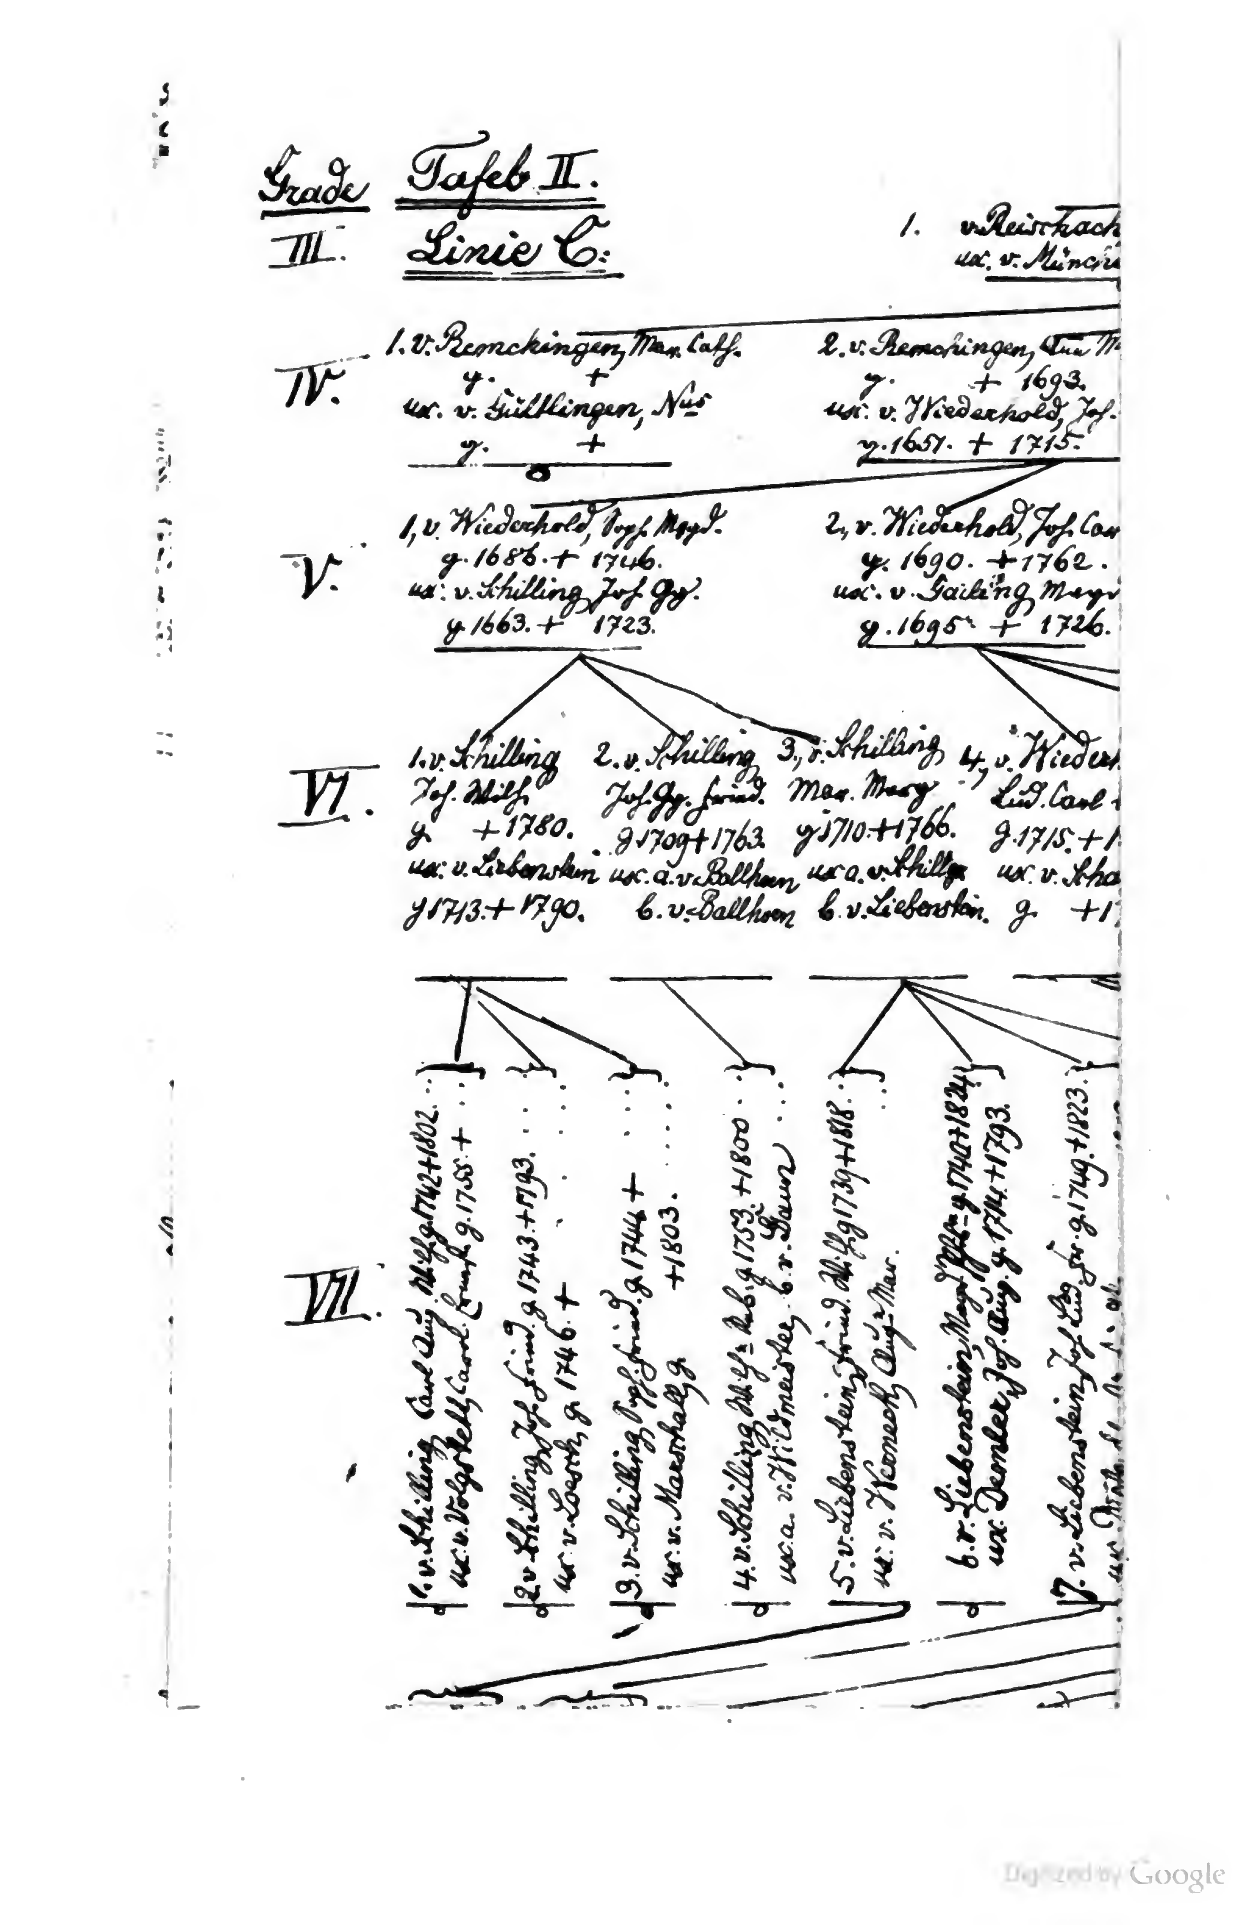 Grade Tafel II.
III. Linie C:
1. v. Reischach
ux. v. Münch
IV.
1. v. Remchingen, Mar. Cath.
g. +
ux. v. Gültlingen, Nus
g. +
2. v. Remchingen,
g. + 1693.
ux. v. Wiederhold, Joh.
g. 1651. + 1715.
V.
1., v. Wiederhold, Soph. Magd.
g. 1686. + 1746.
ux: v. Schilling, Joh. Gg.
g 1663. + 1723.
2., v. Wiederhold, Joh. Car
g. 1690. + 1762.
ux. v. Gailing, Mag
g. 1695. + 1726.
VI.
1. v. Schilling
Joh. Wilh.
g. + 1780.
ux: v. Liebenstein
g 1713. + 1790.
2. v. Schilling,
Joh. Gg. Fried.
g 1709 + 1763.
ux. a. v. Ballhorn
b. v. Ballhorn
3., v. Schilling,
Mar. Marg
g 1710. + 1766.
ux a. v. Schillg
b. v. Liebenstein.
4., v. Wieder
Lud. Carl
g. 1715. + 1
ux. v. Scha
g. + 1
VII.
1. v. Schilling, Carl Aug. Wilh. g. 1742 + 1802.
ux. v. Volgstett, Carol. Ernest. g. 1755 +
2. v. Schilling, Joh. Fried. g. 1743. + 1793.
ux: v. Loesch, g. 1746. +
3. v. Schilling, Soph. Fried. g. 1744 +
ux. v. Marschall, g. + 1803.
4. v. Schilling, Wilh. Reb. g. 1753. + 1800
ux. a. v. Wildmeister, b. v. Daun
5. v. Liebenstein, Fried. Wilh. g 1739 + 1818.
ux: v. Werneck, Aug. Mar.
6. v. Liebenstein, Magd. g. 1740 + 1824
ux. Demler, Joh. Aug. g. 1714. + 1793.
7. v. Liebenstein, Joh. Lud. Fr. g. 1749. + 1823.
ux.
Digitized by Google